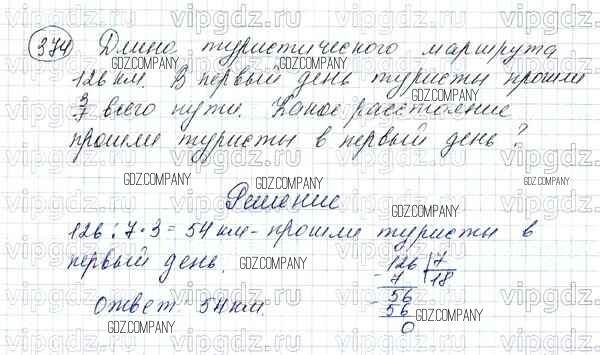 374 Длина туристического маршрута
126 км. В первый день туристы прошли
3/7 всего пути. Какое расстояние
прошли туристы в первый день?
Решение
126 : 7 · 3 = 54 км - прошли туристы в
первый день.
126 | 7
- 7 | 18
- 56
56
0
Ответ 54 км.
vipgdz.ru
GDZ.COMPANY